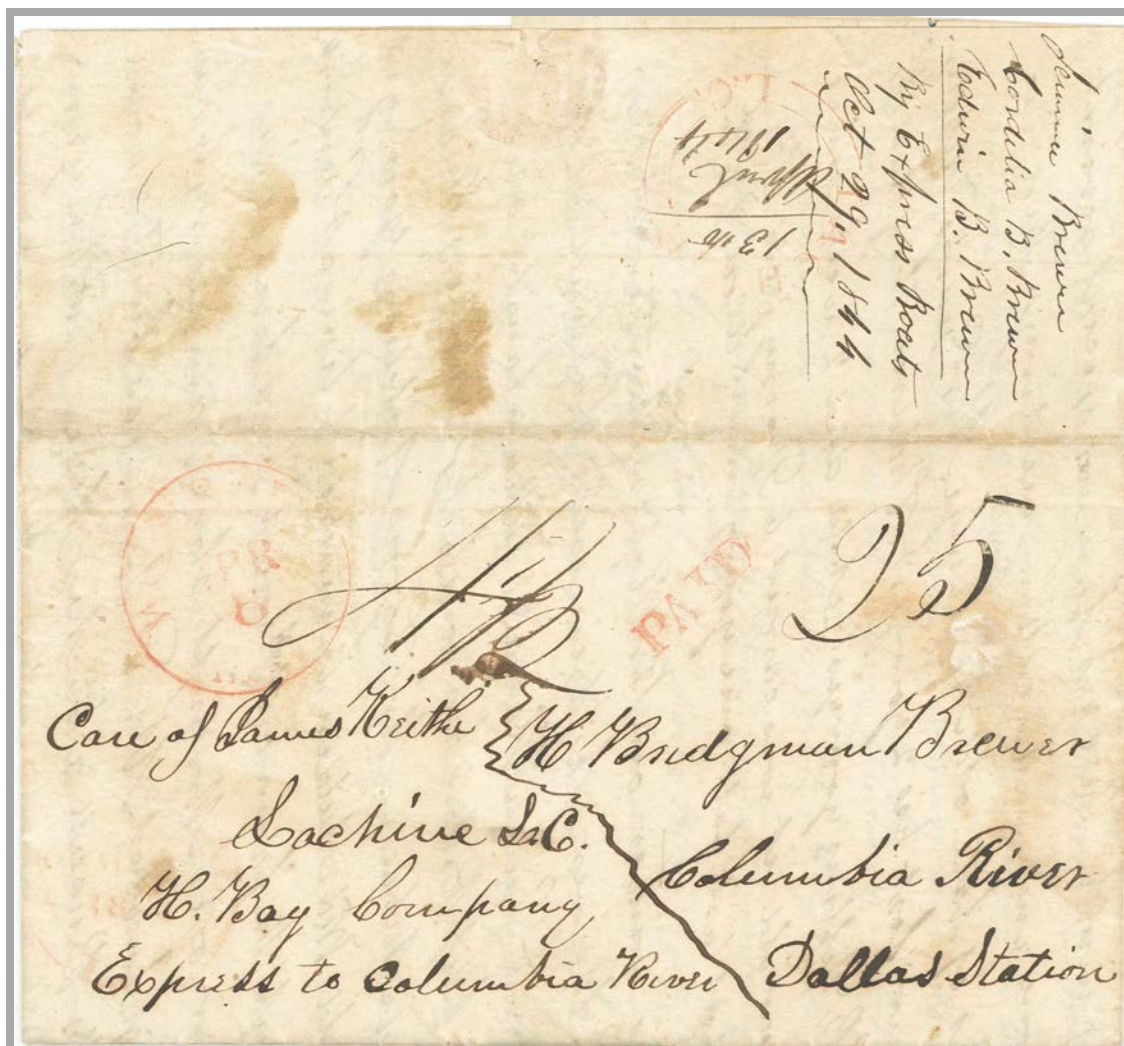 Brewer
Cordelia B. Brewer
Edwin B. Brewer
By Express Boats
Oct 29, 1844
April
1844
L.C.
PR
PAID
25
Care of James Keithe
Lachine L.C.
H. Bay Company
Express to Columbia River
H Bridgman Brewer
Columbia River
Dallas Station